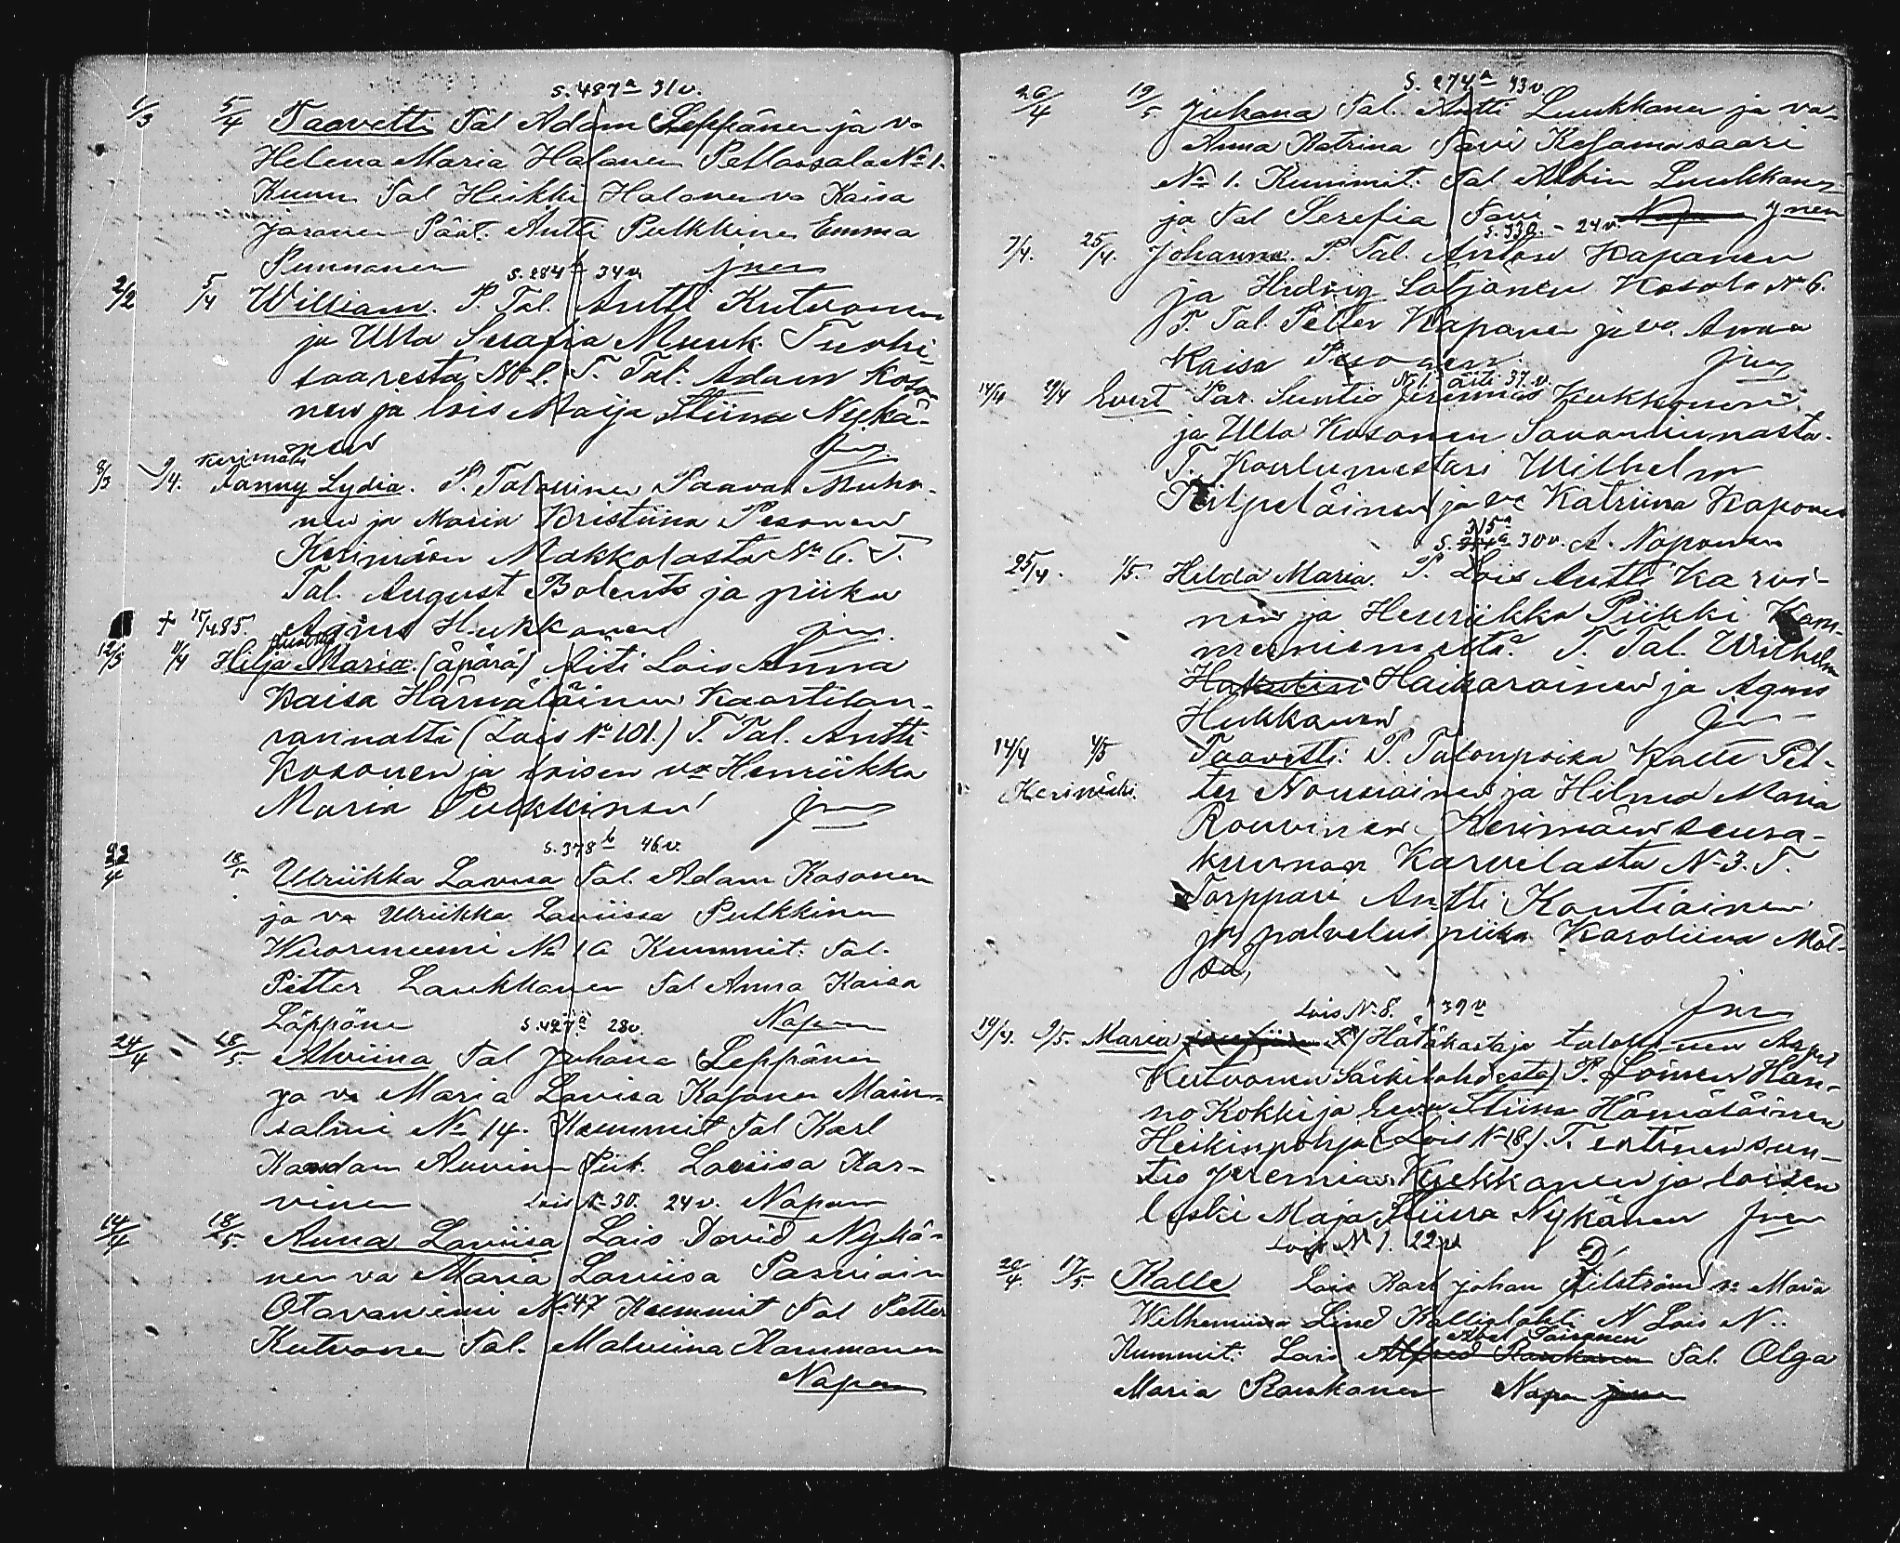 S. 487a 31v.
1/3 5/4 Taavetti Tal Adam Leppänen ja vo
Helena Maria Halonen Pellossalo No 1.
Kumm Tal Heikki Halonen vo Kaisa
Jäsonen Päät. Antti Pulkkinen Emma
Punnanen jnen
S. 284 34v.
2/2 5/4 William. P. Tal. Antti Kutvonen
ja Ulla Serafia Muuk Turhi-
saaresta No 2. T. Tal. Adam Koso
nen ja lois Maija Stiina Nykä-
nen jnen
Kerimäki
8/3 9/4. Fanny Lydia. P. Talollinen Paaval Muho-
nen ja Maria Kristiina Pesonen
Kerimäen Makkolasta No 6. T.
Tal. August Bolents ja piika
† 15/4 85. Agnes Hukkanen jnen.
12/3 11/4 Hilja Maria. (äpärä) Äiti Lois Anna
Kaisa Hämäläinen Kaartilan-
rannatti (Lois No 101.) T. Tal. Antti
Kosonen ja loisen vo Henriikka
Maria Pulkkinen jnen
S. 378b 46v.
22/4 18/5 Ulriikka Lovisa Tal. Adam Kosonen
ja vo Ulriikka Loviissa Pulkkinen
Wuoriniemi No 10 Kummit. Tal.
Pitter Laukkanen Tal Anna Kaisa
Läppöne Napon
S. 427a 28v.
24/4 18/5 Alviina Tal Juhana Leppänen
ja vo Maria Lovisa Kosonen Moin-
salmi No 14. Kummit Tal Karl
Kaadam Auvinen Piik. Loviisa Kar-
vinen Napon
Lois No 30. 24v.
14/4 18/5. Anna Loviisa Lois David Nykä-
nen vo Maria Loviisa Parviain
Otavaniemi No 47 Kummit Tal Petter
Kutvonen Tal. Malviina Kammonen
Napon
S. 274a 33v
26/4 19/5 Juhana Tal. Antti Luukkanen ja vo
Anna Katrina Savi Kesamasaari
No 1. Kummit. Tal Albin Luukkanen
ja Tal Serefia Savi
S. 330. - 24v.
7/4. 25/4. Johanna. P. Tal. Anton Kapanen
ja Hedvig Latjonen Kosola No 6.
T. Tal. Petter Kapanen ja vo. Anna
Kaisa jnen
No 1. äiti 37.v.
14/4 29/4 Evert Par. Suntio Jeremias Kukkonen
ja Ulla Kosonen Savonlinnasta.
T. Koulumestari Wilhelm
Piitpeläinen ja vo Katriina Kaponen
S. 315a 30v. A. Noponen
25/4. 1/5. Hilda Maria. P. Lois Antti Karvi-
nen ja Henriikka Piikki Kam-
meniemeltä. T. Tal. Wilhelm
Hakulin Haukarainen ja Agnes
Hukkanen jnen
14/4 4/5 Taavetti. P. Talonpoika Kalle Pet-
Kerimäki. ter Nousiainen ja Helma Maria
Rouvinen Kerimäen seura-
kunnan Karvilasta No 3. T.
Torppari Antti Kontiainen
ja palvelus piika Karoliina Möl-
sä,
Lois No 8. 39v jnen
19/4. 9/5. Maria (Hätäkastaja talollinen Aapel
Kutvonen Särkilahdesta) P. Loinen Han-
no Kokki ja Eeva Stiina Hämäläinen
Heikinpohja (Lois No 18). T. entinen sun-
tio Jeremias Kukkanen ja loisen
leski Maja Stiina Nykänen jnen
Lois No 1. 22v
20/4. 17/5 Kalle Lois Karl Johan Filström vo Maria
Wilhemiina Lind Kalliolahti N Lois N..
Abel Loisonen
Kummit. Lois Alfred Raukanen Tal. Olga
Maria Raukanen Napon jnen